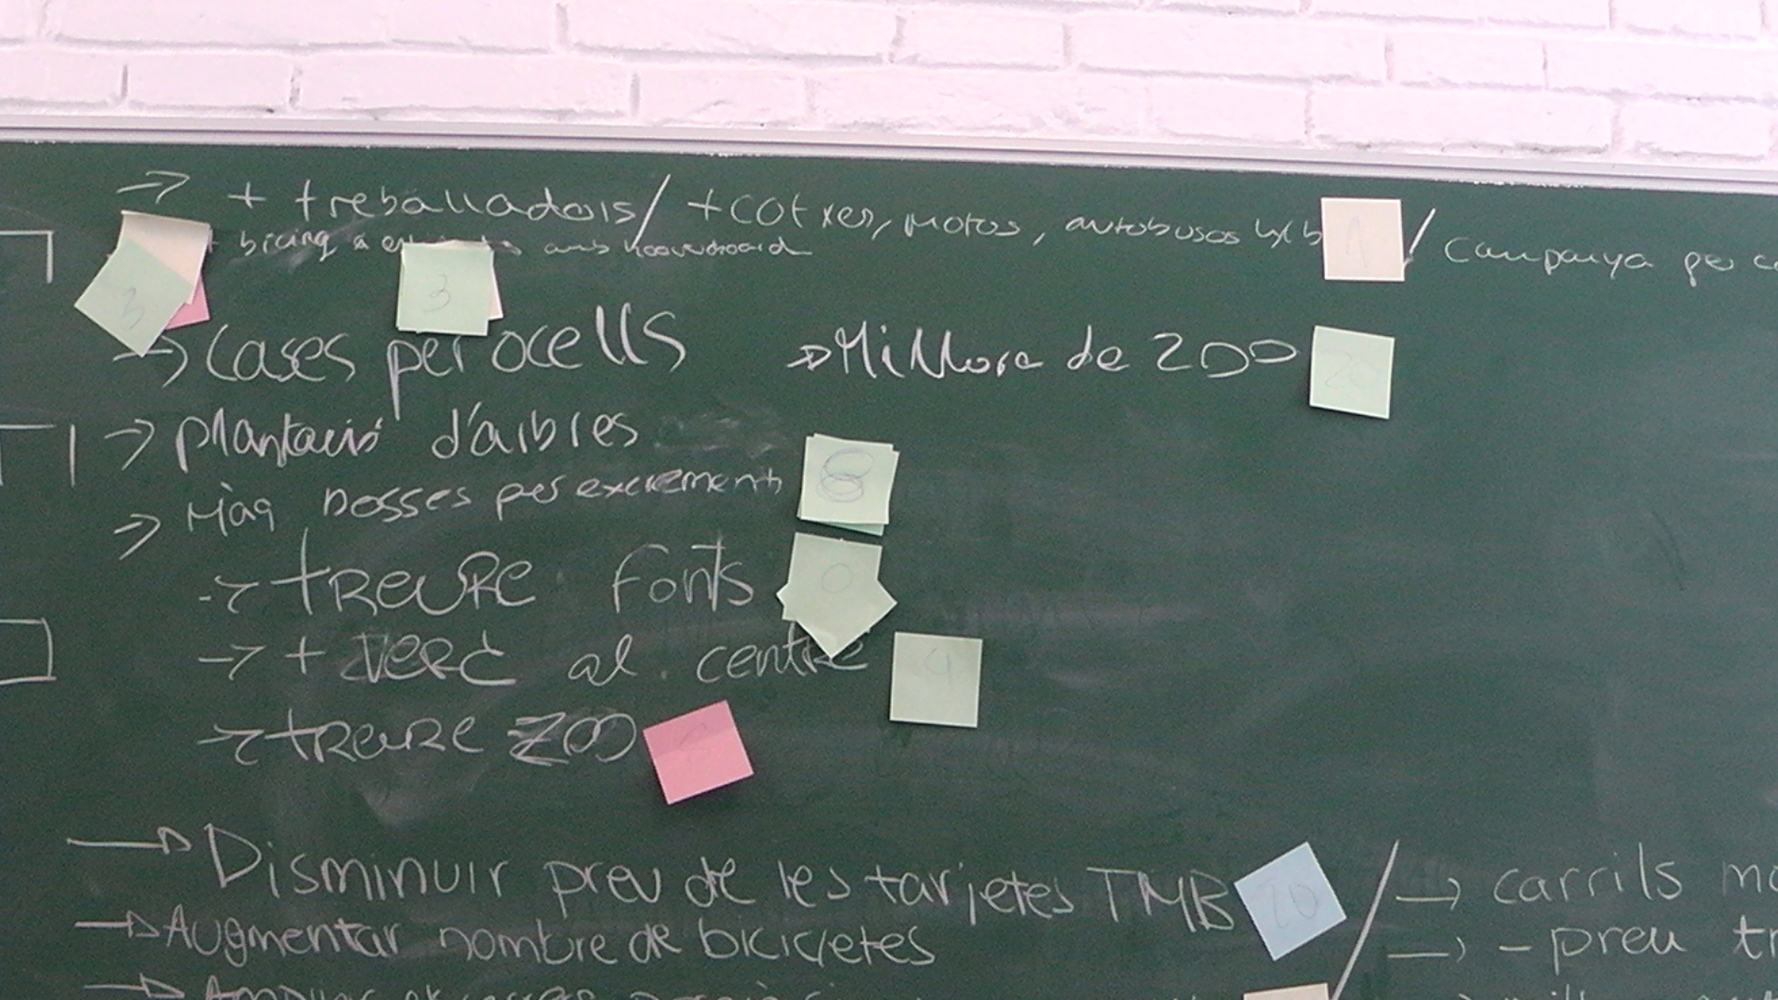 → + treballadors / + cotxes, motos, autobusos 1 / Campanya per
bicing a amb hoverboard
3 3
→ Cases per ocells → Millora de ZOO 20
→ plantació d'arbres
→ Màq bosses per excrements 8
→ treure fonts 0
→ + verd al centre 9
→ treure ZOO
→ Disminuir preu de les tarjetes TMB 20 / → carrils
→ Augmentar nombre de bicicletes → - preu